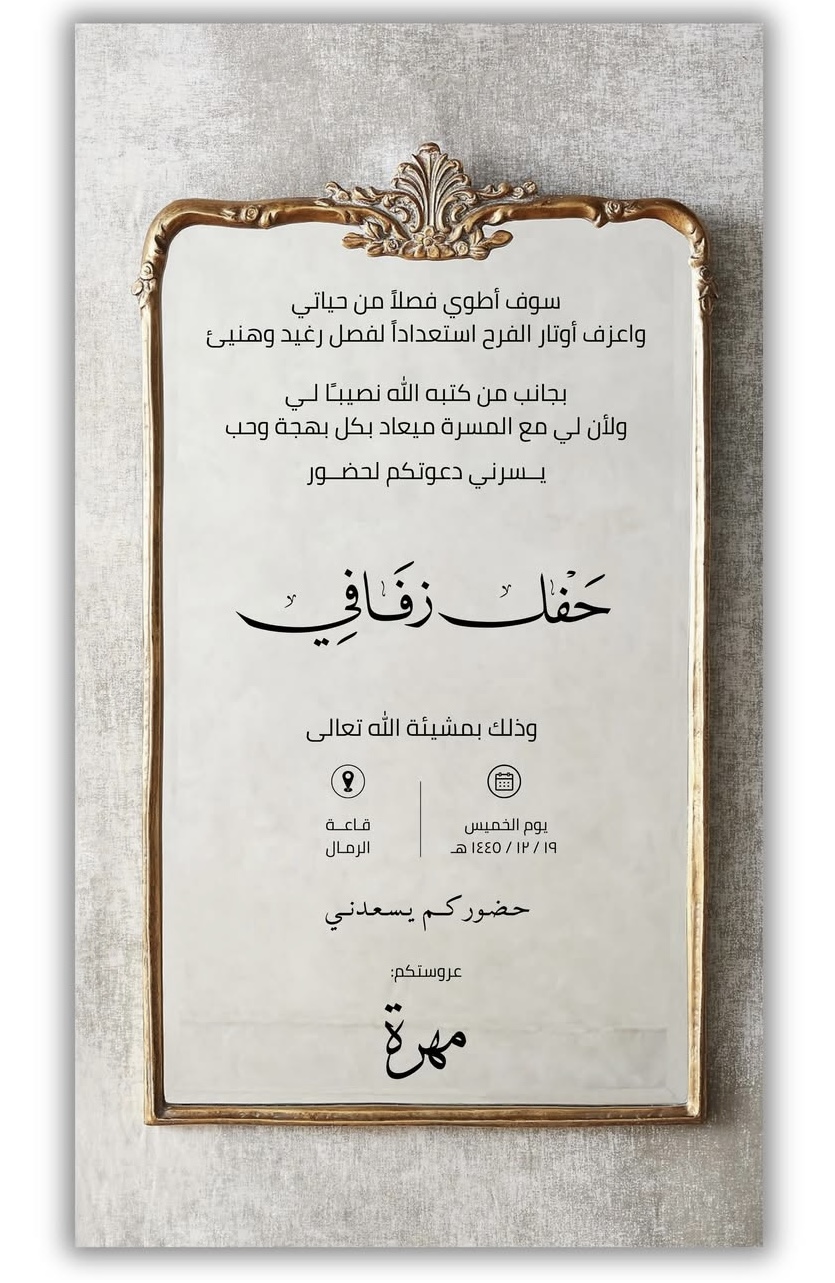 سوف أطوي فصلاً من حياتي
واعزف أوتار الفرح استعداداً لفصل رغيد وهنيئ
بجانب من كتبه الله نصيبـًا لـي
ولأن لي مع المسرة ميعاد بكل بهجة وحب
يــسرني دعوتكم لحضــور
حَفْل زفَافِي
وذلك بمشيئة الله تعالى
يوم الخميس
١٩ / ١٢ / ١٤٤٥ هـ
قـاعـــة
الرمـال
حضوركـم يـسعدنـي
عروستكم:
مهرة